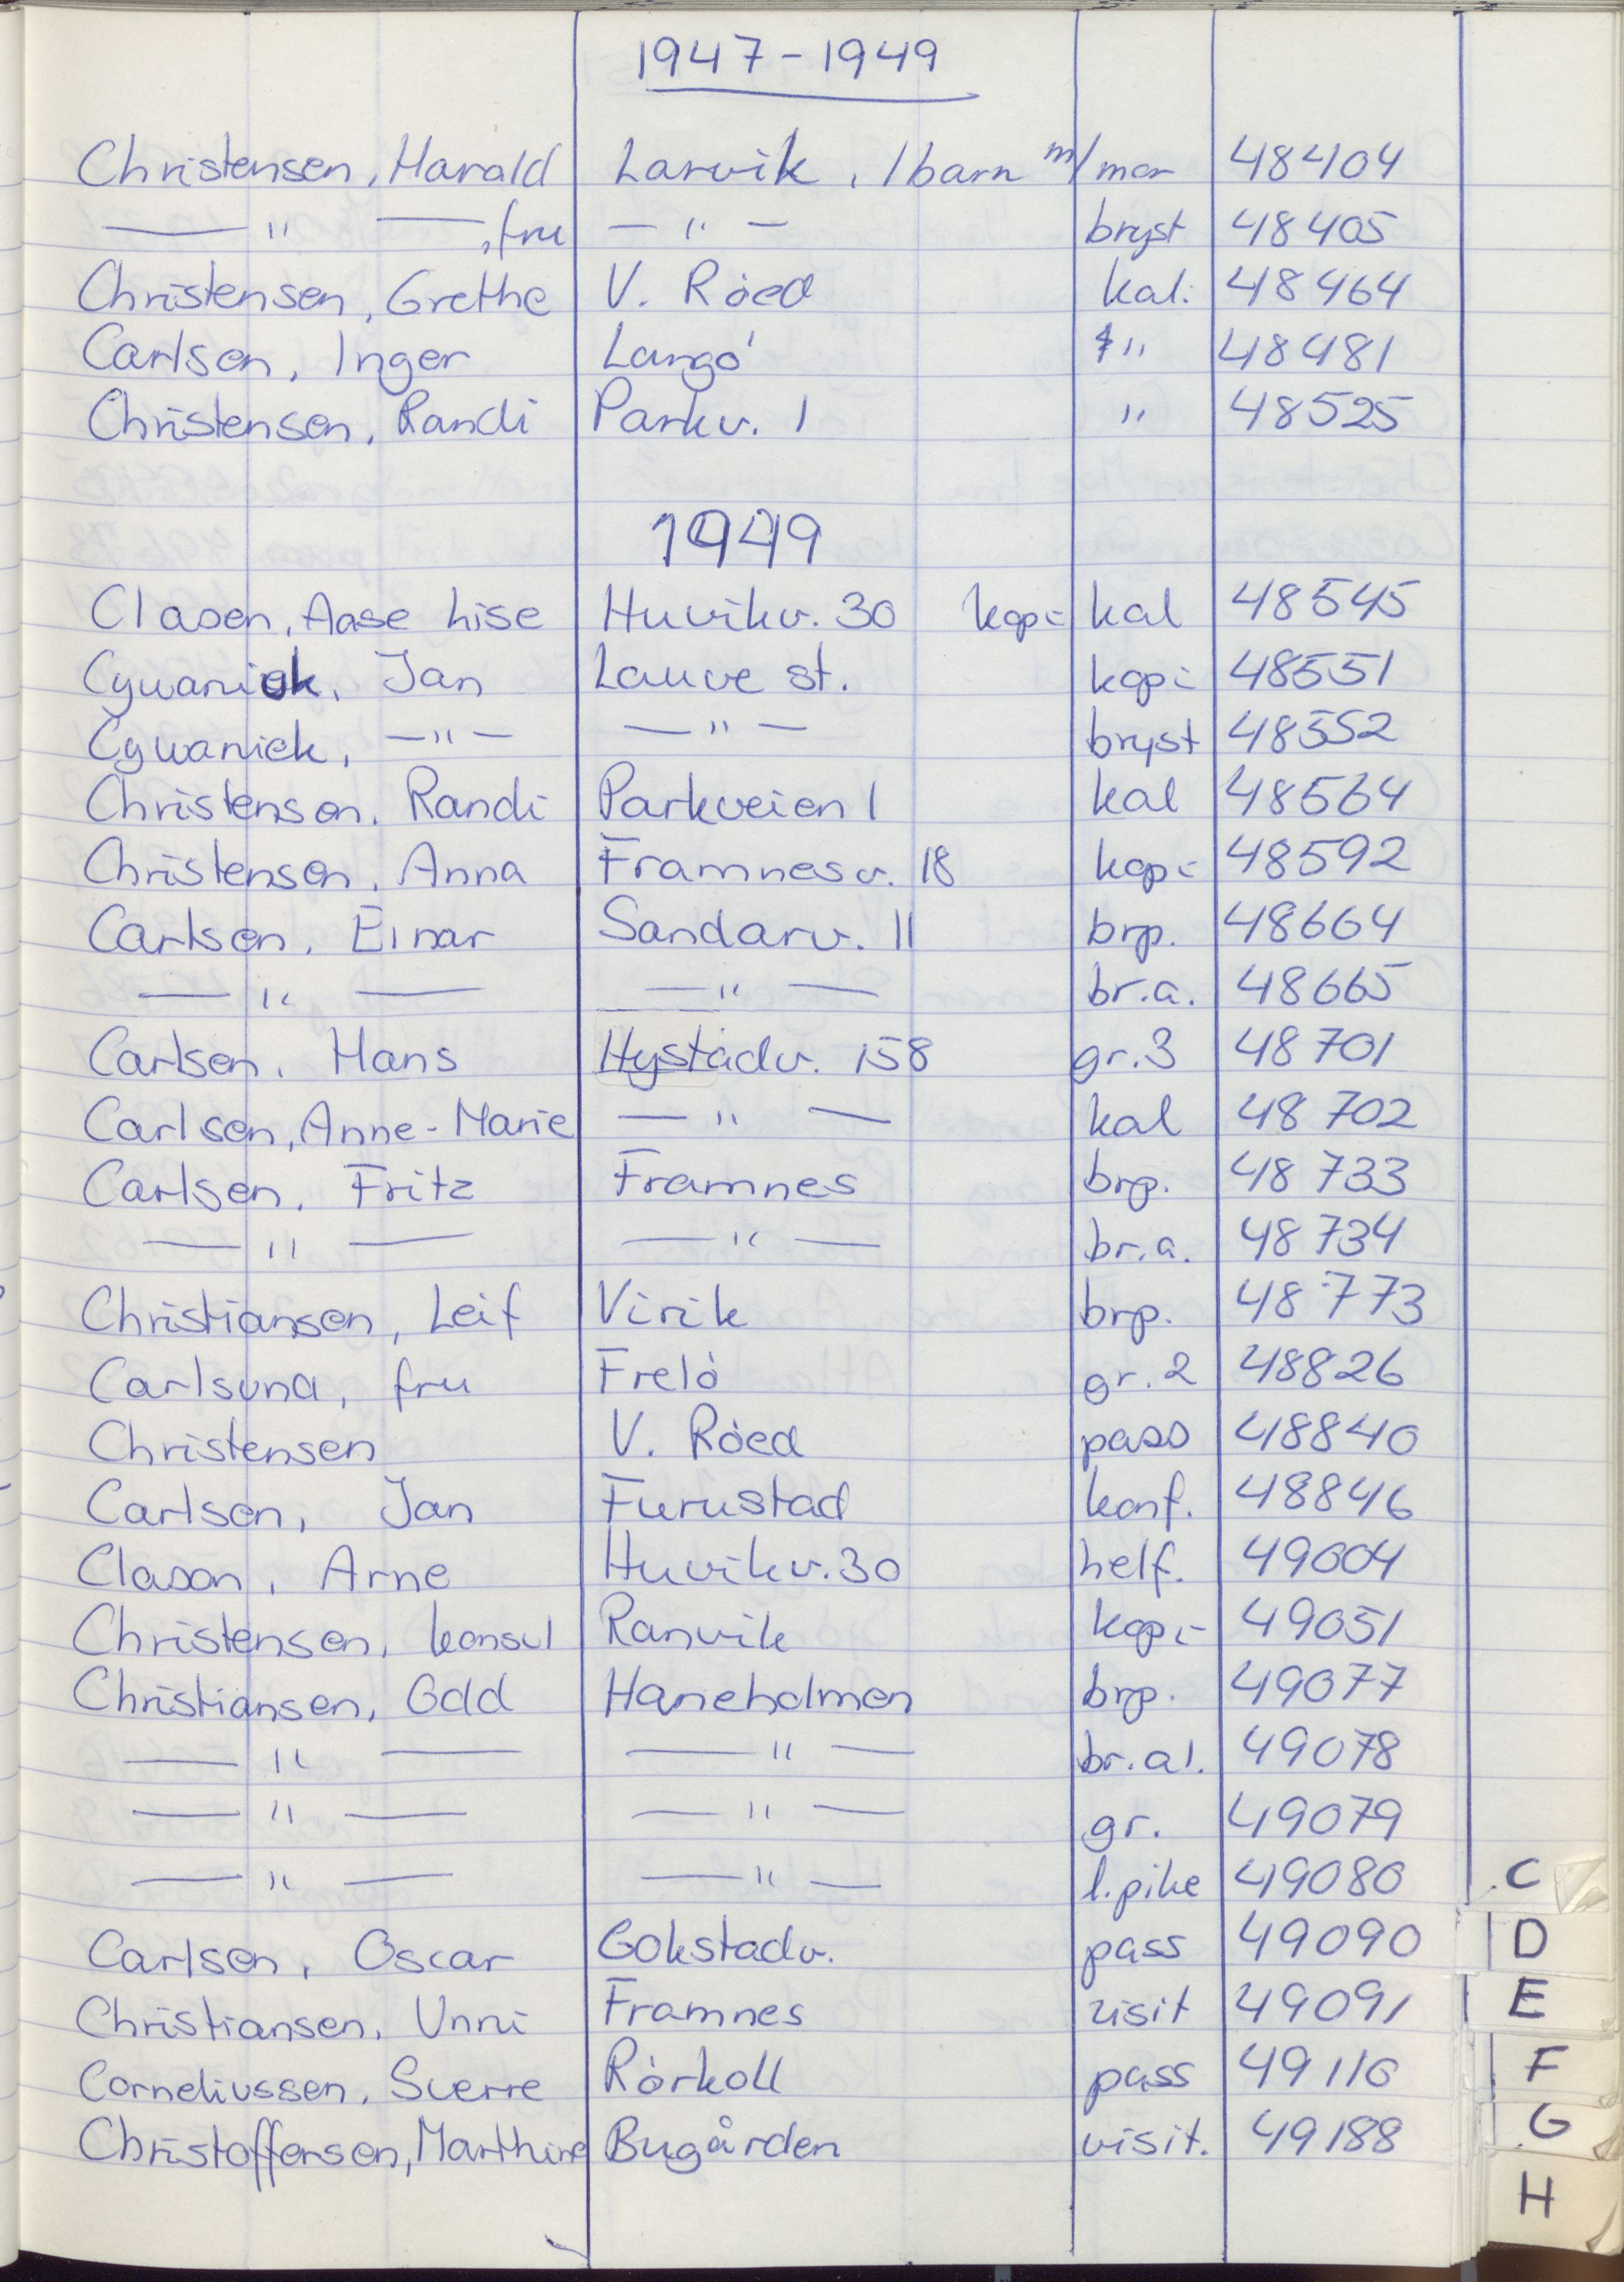 1947-1949
Christensen, Harald Larvik, 1 barn m/mor 48404
— " —, fru — " — bryst 48405
Christensen, Grethe V. Röed kal. 48464
Carlsen, Inger Langö " 48481
Christensen, Randi Parkv. 1 " 48525
1949
Clasen, Aase Lise Huvikv. 30 kopi kal 48545
Cywaniek, Jan Lauve st. kopi 48551
Cywaniek, — " — — " — bryst 48552
Christensen, Randi Parkveien 1 kal 48564
Christensen, Anna Framnesv. 18 kopi 48592
Carlsen, Einar Sandarv. 11 brp. 48664
— " — — " — br.a. 48665
Carlsen, Hans Hystadv. 158 gr.3 48701
Carlsen, Anne-Marie — " — kal 48702
Carlsen, Fritz Framnes brp. 48733
— " — — " — br.a. 48734
Christiansen, Leif Virik brp. 48773
Carlsund, fru Frelö gr.2 48826
Christensen V. Röed pass 48840
Carlsen, Jan Furustad konf. 48846
Clason, Arne Huvikv. 30 helf. 49004
Christensen, konsul Ranvik kopi 49051
Christiansen, Odd Haneholmen brp. 49077
— " — — " — br.al. 49078
— " — — " — gr. 49079
— " — — " — l.pike 49080
Carlsen, Oscar Gokstadv. pass 49090
Christiansen, Unni Framnes visit 49091
Corneliussen, Sverre Rörkoll pass 49116
Christoffersen, Marthine Bugården visit. 49188
C
D
E
F
G
H